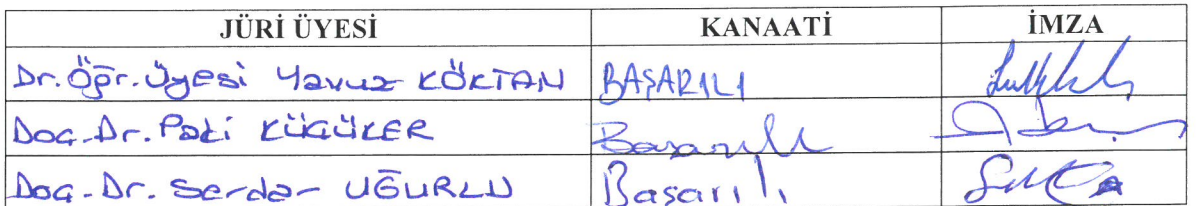 JÜRİ ÜYESİ KANAATİ İMZA
Dr. Öğr. Üyesi Yavuz KÖKTAN BAŞARILI
Doç. Dr. Paki KÜÇÜKER Başarılı
Doç. Dr. Serdar UĞURLU Başarılı